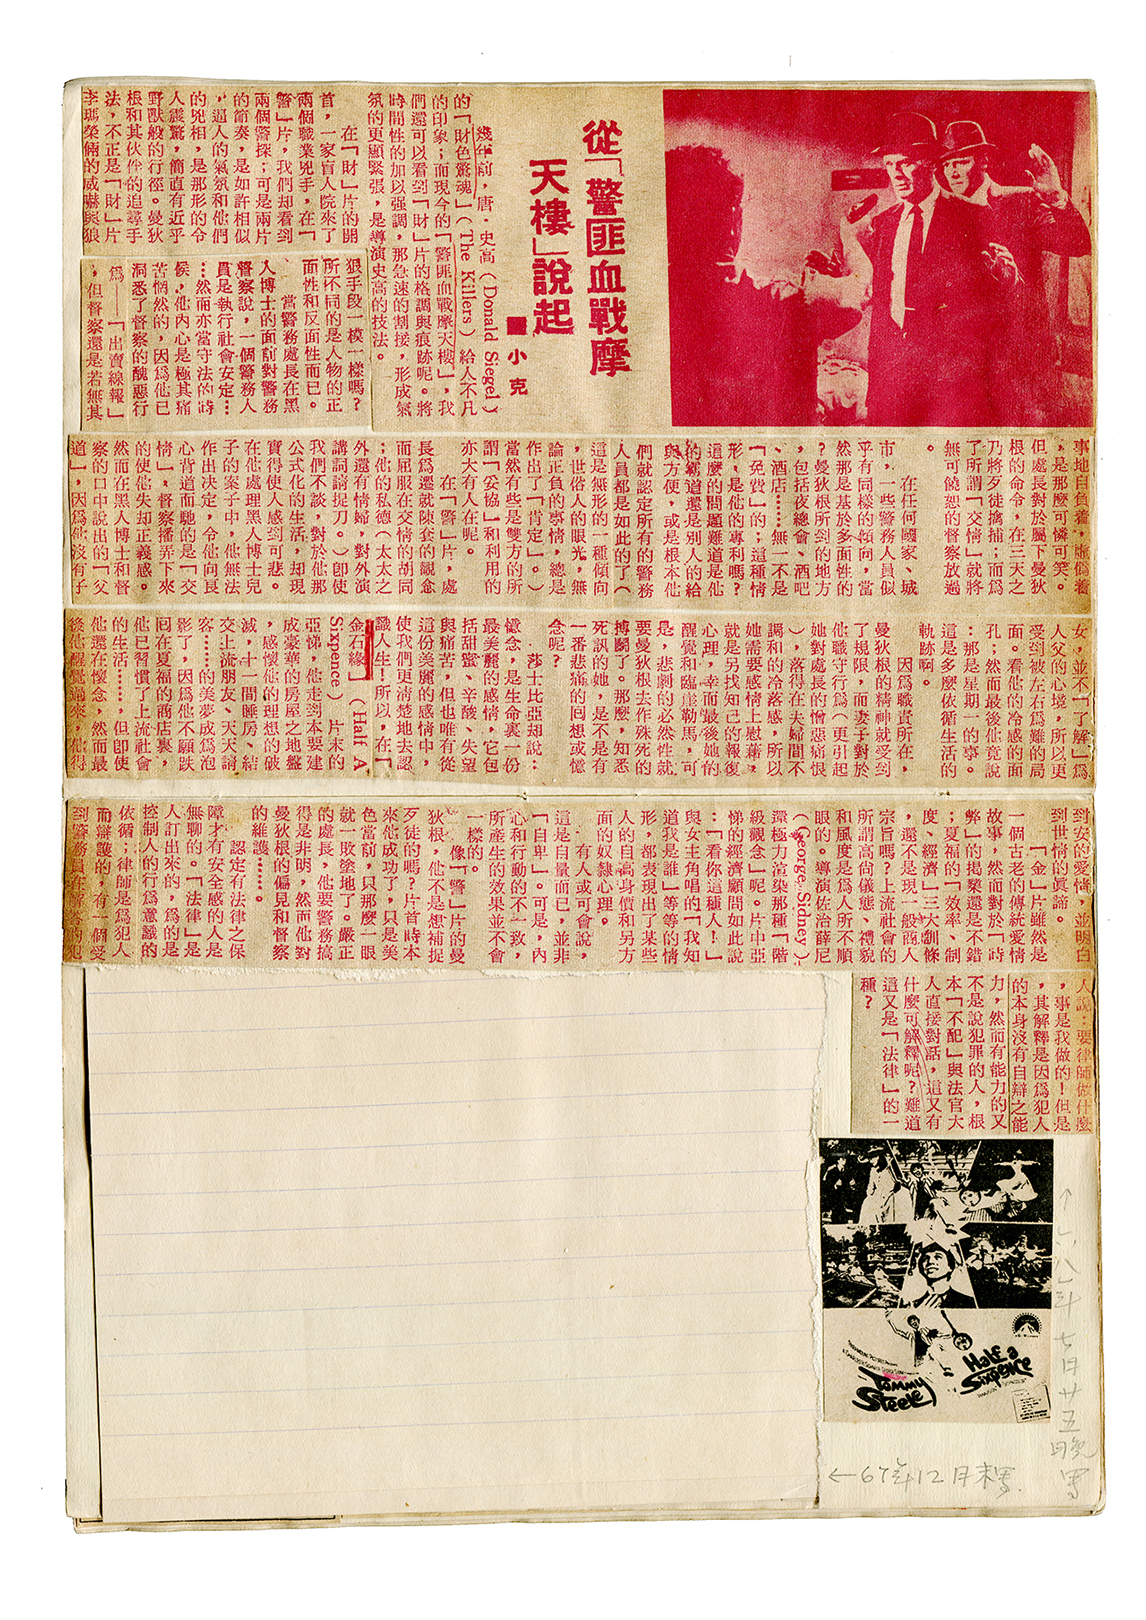 從「警匪血戰摩
天樓」說起
■小克
幾年前，唐·史高(Donald Siegel)
的「財色驚魂」(The Killers)給人不凡
的印象；而現今的「警匪血戰摩天樓」，我
們還可以看到「財」片的格調與痕跡呢。將
時間性的加以强調，那急速的割接，形成氣
氛的更顯緊張，是導演史高的技法。
在「財」片的開
首，一家盲人院來了
兩個職業兇手，在「
警」片，我們却看到
兩個警探；可是兩片
的節奏，是如許相似
，逼人的氣氛和他們
的兇相，是那形的令
人震驚，簡直有近乎
野獸般的行徑。曼狄
根和其伙伴的追尋手
法，不正是「財」片
李瑪榮倆的威嚇與狼
狠手段一模一樣嗎？
所不同的是人物的正
面性和反面性而已。
當警務處長在黑
人博士的面前對警務
督察說，一個警務人
員是執行社會安定…
…然而亦當守法的時
候，他內心是極其痛
苦惘然的，因爲他已
洞悉了督察的醜惡行
爲——「出賣線報」
，但督察還是若無其
事地自負着，虛僞着
，是那麼可憐可笑。
但處長對於屬下曼狄
根的命令，在三天之
乃將歹徒擒捕；而爲
了所謂「交情」就將
無可饒恕的督察放過
。
在任何國家、城
市，一些警務人員似
乎有同樣的傾向，當
然那是基於多面性的
？曼狄根所到的地方
，包括夜總會、酒吧
、酒店……無一不是
「免費」的；這種情
形，是他的專利嗎？
這麼的問題難道是他
的鄉道還是別人的給
與方便，或是根本他
們就認定所有的警務
人員都是如此的了（
這是無形的一種傾向
，世俗人的眼光，無
論正負的事情，總是
作出了「肯定」）。
當然有些是雙方的所
謂「妥協」和利用的
亦大有人在呢。
在「警」片，處
長爲還就陳套的觀念
而屈服在交情的胡同
；他的私德（太太之
外還有情婦，對外演
講詞請捉刀。）卽使
我們不談，對於他那
公式化的生活，却現
實得使人感到可悲。
在他處理黑人博士兒
子的案子中，他無法
作出決定，令他向良
心背道而馳的是「交
情」，督察播弄下來
的使他失却正義感。
然而在黑人博士和督
察的口中說出的「父
道」，因爲他沒有子
女，並不「了解」爲
人父的心境，所以更
受到被左右爲難的局
面。看他的冷感的面
孔；然而最後他竟說
：那是星期一的事。
這是多麼依循生活的
軌跡啊。
因爲職責所在，
曼狄根的精神就受到
了規限，而妻子對於
他職守行爲（更引起
她對處長的憎惡痛恨
），落得在夫婦間不
調和的冷落感，所以
她需要感情上慰藉，
就是另找知己的報復
心理，幸而最後她的
醒覺和臨崖勒馬，可
是，悲劇的必然性就
要曼狄根去作殊死的
搏鬪了。那麼，知悉
死訊的她，是不是有
一番悲痛的囘想或憶
念呢？
莎士比亞却說：
懺念，是生命裏一份
最美麗的感情，它包
括甜蜜、辛酸、失望
與痛苦，但也唯有從
這份美麗的感情中，
使我們更清楚地去認
識人生！所以，在「
金石緣」(Half A
Sixpence)片末的
亞悌，他走到本要建
成豪華的房屋之地盤
，感懷他的理想的破
滅，十一間睡房、結
交上流朋友、天天請
客……的美夢成爲泡
影了，因爲他不願跌
囘在夏福的商店裏，
他已習慣了上流社會
的生活……，但卽使
他還在懷念，然而最
後他醒覺過來，他得
到安的愛情，並明白
到世情的眞諦。
「金」片雖然是
一個古老的傳統愛情
故事，然而對於「時
弊」的揭櫫還是不錯
；夏福的「效率、制
度、經濟」三大創條
，還不是現一般商人
宗旨嗎？上流社會的
所謂高尚儀態、禮貌
和風度是爲人所不順
眼的。導演佐治薛尼
(George Sidney)
還極力渲染那種「階
級觀念」呢。片中亞
悌的經濟顧問如此說
：「看你這種人！」
與女主角唱的「我知
道我是誰」等等的情
形，都表現出了某些
人的自高身價和另方
面的奴隸心理。
有人或可會說，
這是自量而已，並非
「自卑」。可是，內
心和行動的不一致，
所產生的效果並不會
一樣的。
像「警」片的曼
狄根，他不是想補捉
歹徒的嗎？片首時本
來他成功了，只是美
色當前，只那麼一眼
就一敗塗地了。嚴正
的處長，他要警務搞
得是非明，然而他對
曼狄根的偏見和督察
的維護……。
認定有法律之保
障才有安全感的人是
無聊的。「法律」是
人訂出來的，爲的是
控制人的行爲意識的
依循；律師是爲犯人
而辯護的，有一個受
到警務員在解答的犯
人說：要律師做什麼
，事是我做的！但是
，其解釋是因爲犯人
的本身沒有自辯之能
力，然而有能力的又
不是說犯罪的人，根
本「不配」與法官大
人直接對話，這又有
什麼可解釋呢？難道
這又是「法律」的一
種？
Tommy
Steele
Half a
Sixpence
↑六八年七月廿五晚寫
←67年12月末寫.